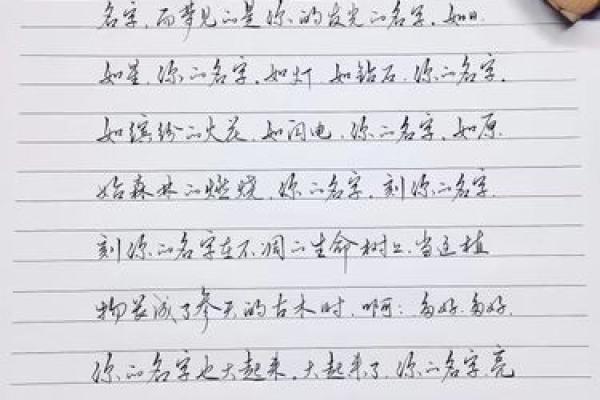 名字，而梦见的是你的发光的名字，如日
如星，你的名字，如灯 如钻石，你的名字，
如缤纷的火花，如闪电，你的名字，如原
始森林的燃烧，你的名字，刻你的名字
刻你的名字在不凋的生命树上，当这植
物长成了参天的古木时，啊：多好，多好，
你的名字也大起来，大起来了，你的名字，亮